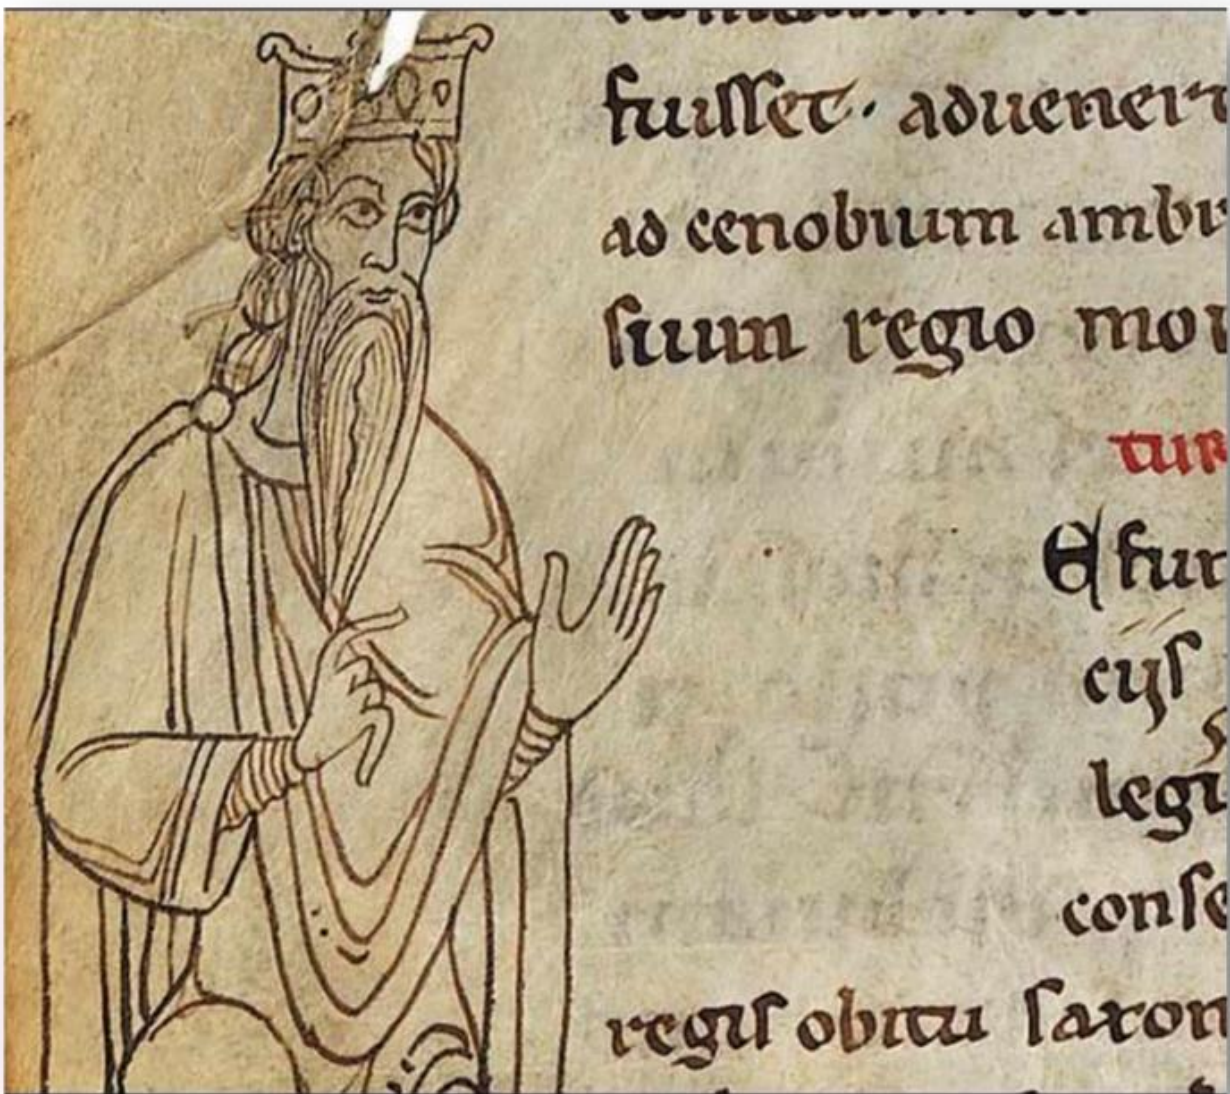 fuisset · aduener
ad cenobium ambr
suum regio mor
tur
E fun
cijs
legi
conse
regis obitu saxon